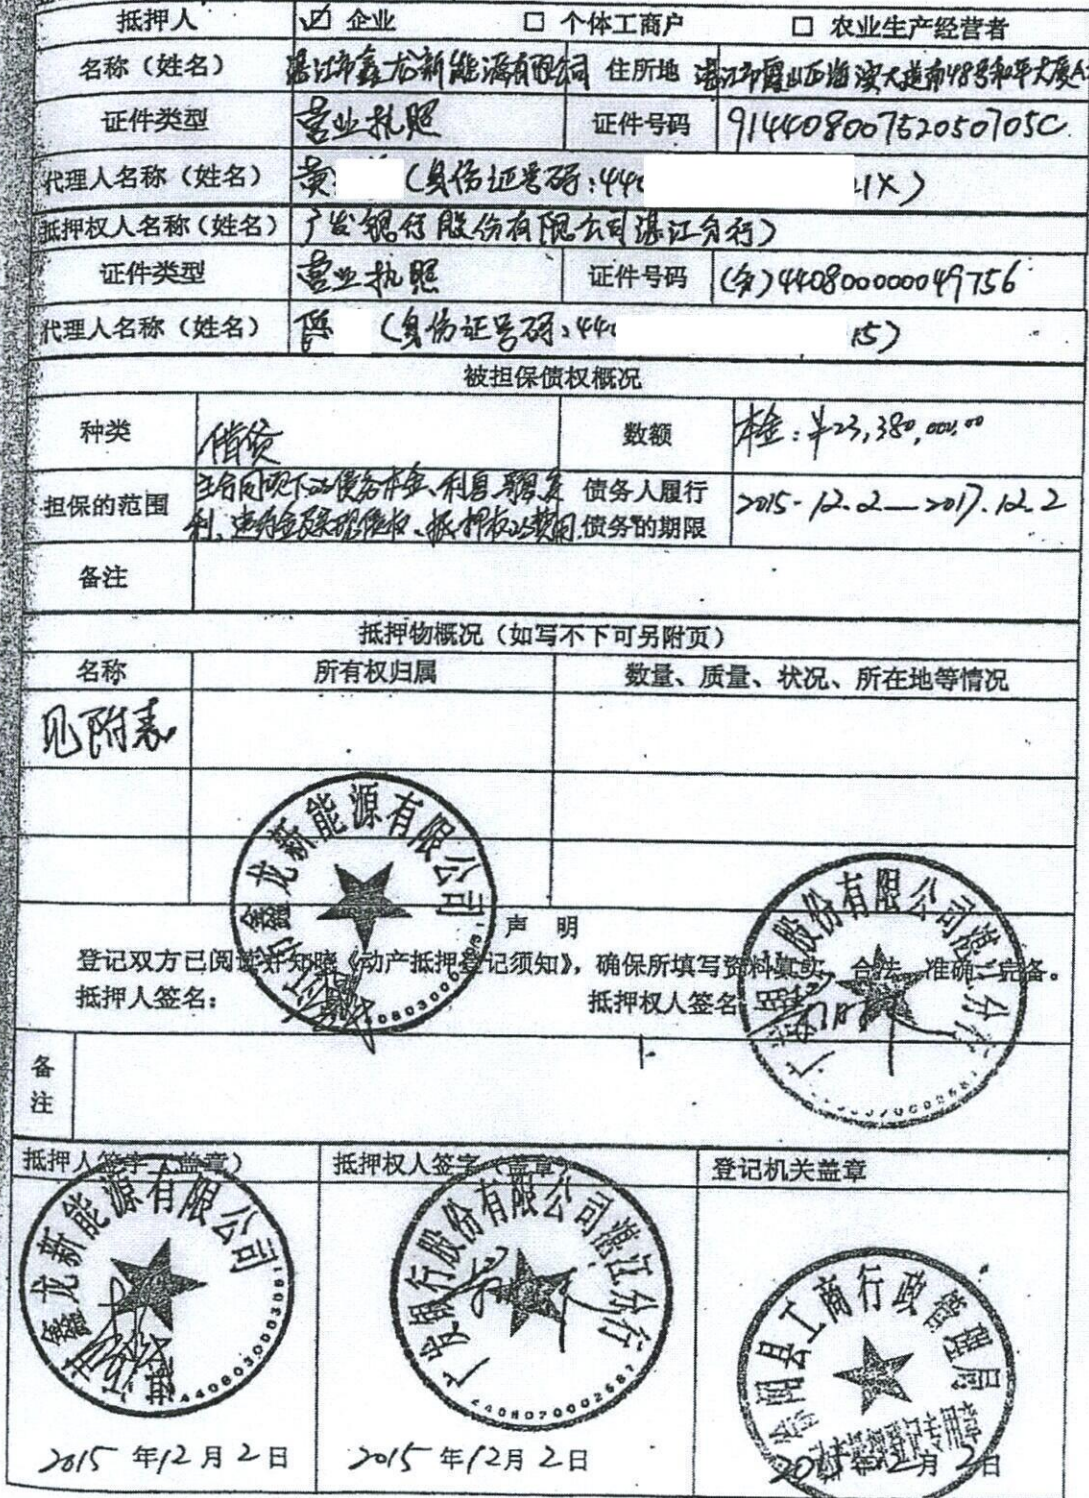 抵押人 ☑ 企业 □ 个体工商户 □ 农业生产经营者
名称（姓名） 湛江市鑫龙新能源有限公司 住所地 湛江市霞山西海滨大道南48号和平大厦A
证件类型 营业执照 证件号码 91440800752050705C
代理人名称（姓名） 黄 （身份证号码：440 1X）
抵押权人名称（姓名） 广发银行股份有限公司湛江分行）
证件类型 营业执照 证件号码 440800000049756
代理人名称（姓名） 陈 （身份证号码：44 15）
被担保债权概况
种类 借贷 数额 本金：¥23,380,000.00
担保的范围 主合同项下的债务本金、利息、罚息、复利、违约金及实现债权、抵押权的费用. 债务人履行债务的期限 2015-12.2—2017.12.2
备注
抵押物概况（如写不下可另附页）
名称 所有权归属 数量、质量、状况、所在地等情况
见附表
声 明
登记双方已阅读并知晓《动产抵押登记须知》，确保所填写资料真实、合法、准确、完备。
抵押人签名： 抵押权人签名
江市鑫龙新能源有限公司
广发银行股份有限公司湛江分行
备注
抵押人签字（盖章） 抵押权人签字（盖章） 登记机关盖章
湛江市鑫龙新能源有限公司
4408030003816
广发银行股份有限公司湛江分行
县工商行政管理局
动产抵押登记专用章
2015 年12月 2日 2015 年12月 2日 2015年12月 2日